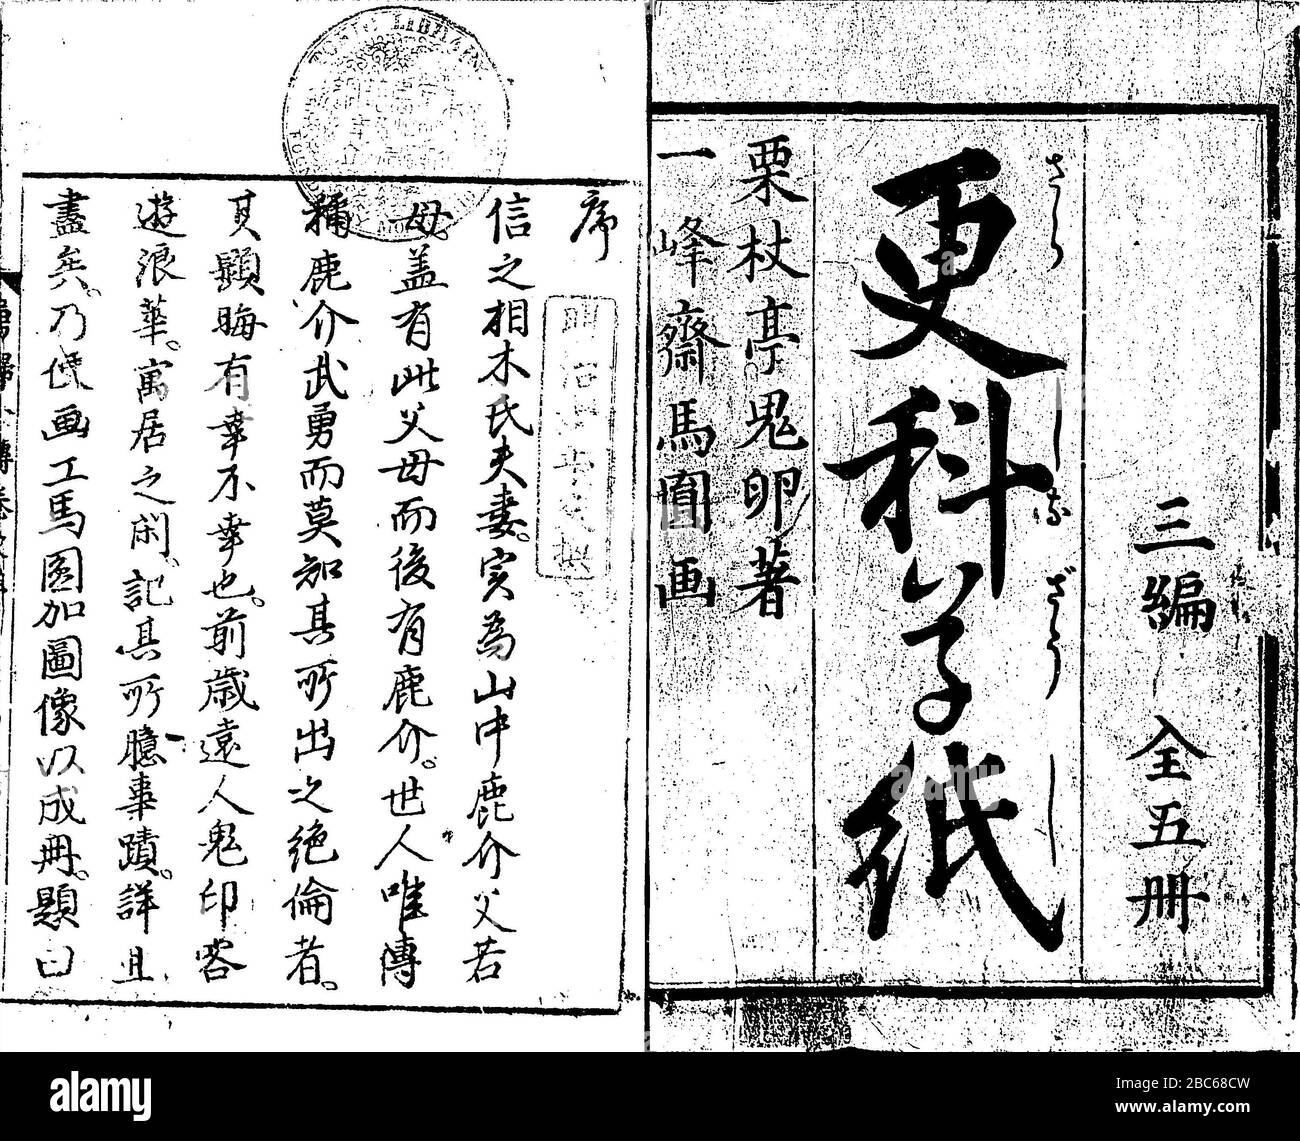 三編 全五冊
更科草紙
さらしなざうし
栗杖亭鬼卵著
一峰齋馬圓画
序
信之相木氏夫妻。実為山中鹿介父若
母。盖有此父母而後有鹿介。世人唯傳
稱鹿介武勇而莫知其所出之絶倫者。
其顕晦有幸不幸也。前歳遠人鬼卵客
遊浪華。寓居之間。記其所臆事蹟。詳且
盡矣。乃使画工馬圓加圖像以成冊。題曰
alamy
Image ID: 2BC68CW
www.alamy.com